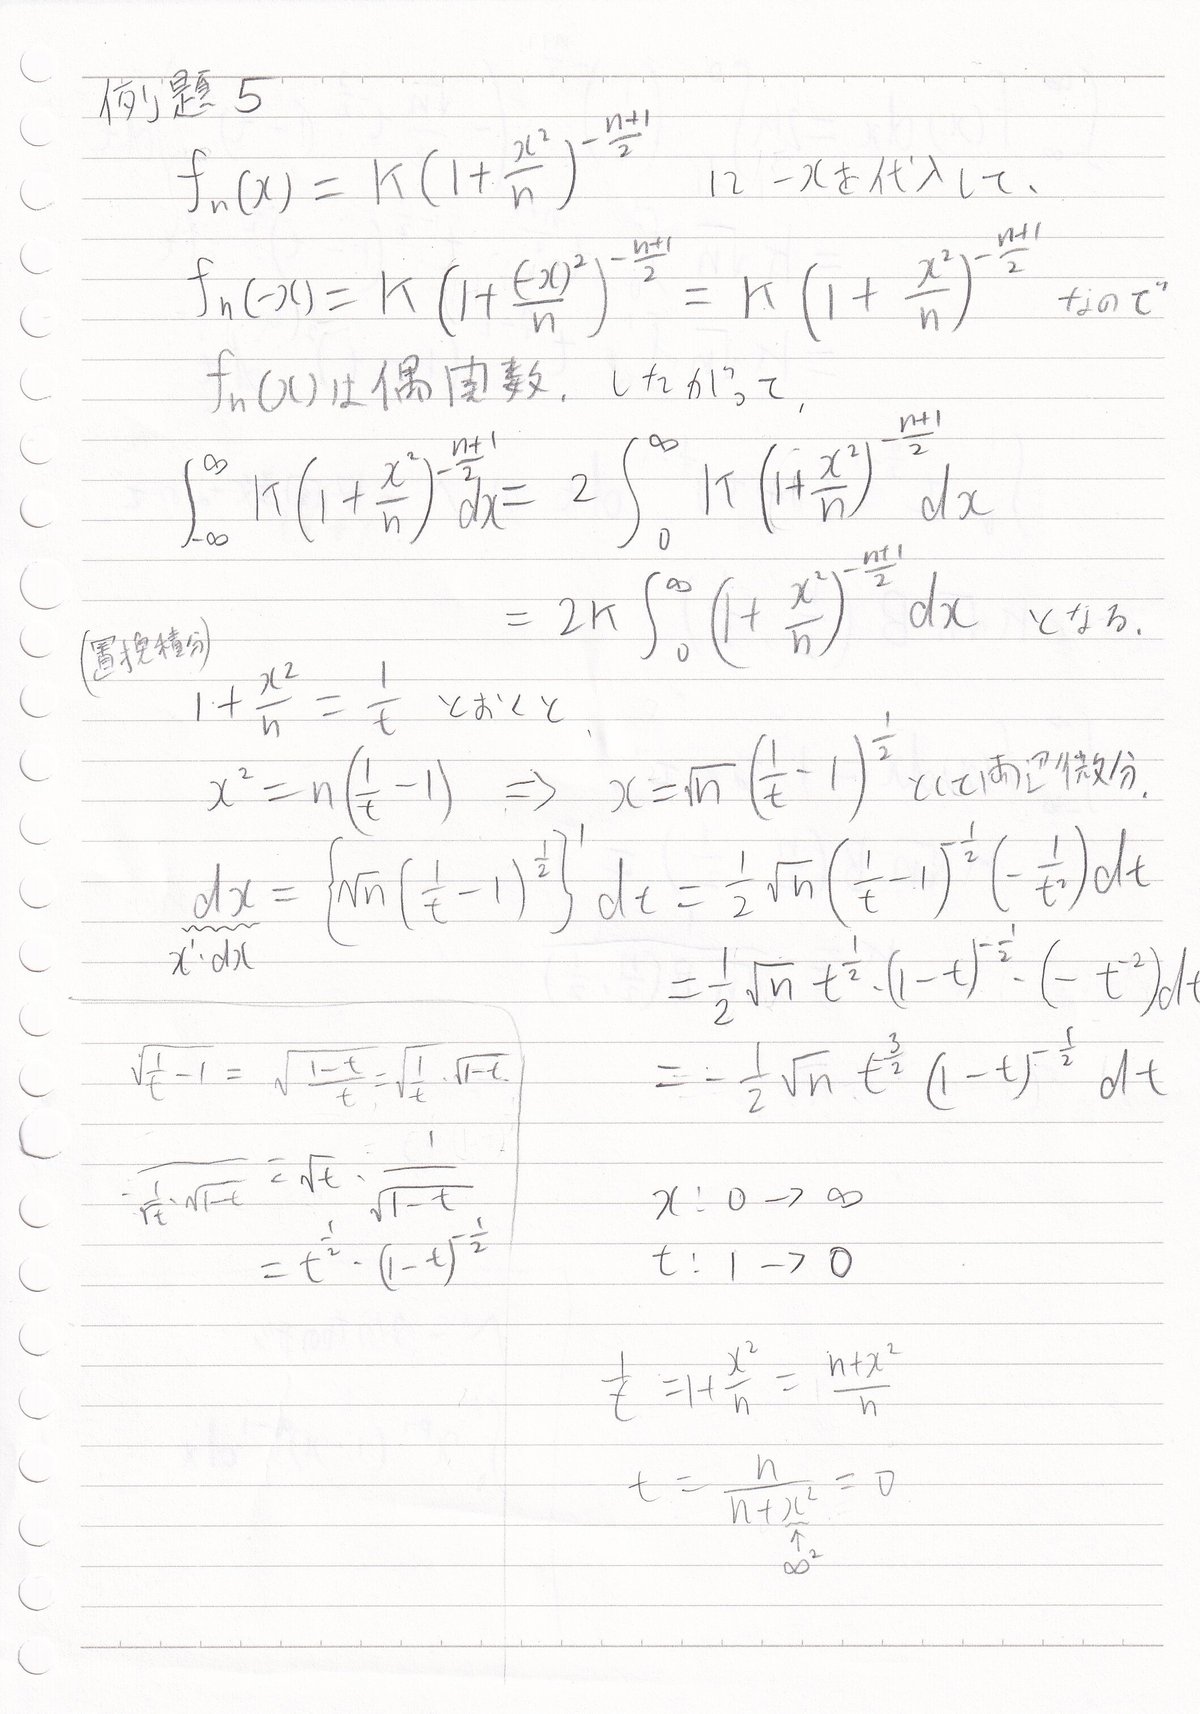 例題 5
fₙ(x) = K(1+x²/n)^(-(n+1)/2) に -xを代入して、
fₙ(-x) = K(1+(-x)²/n)^(-(n+1)/2) = K(1+x²/n)^(-(n+1)/2) なので
fₙ(x)は偶関数. したがって,
∫_{-∞}^{∞} K(1+x²/n)^(-(n+1)/2) dx = 2∫_0^∞ K(1+x²/n)^(-(n+1)/2) dx
= 2K∫_0^∞ (1+x²/n)^(-(n+1)/2) dx となる.
(置換積分)
1+x²/n = 1/t とおくと,
x² = n(1/t-1) ⇒ x=√n(1/t-1)^(1/2) として両辺微分.
dx = {√n(1/t-1)^(1/2)}' dt = 1/2 √n(1/t-1)^(-1/2) (-1/t²)dt
x'·dx
= 1/2 √n t^(1/2)·(1-t)^(-1/2)·(-t^(-2))dt
= -1/2 √n t^(3/2) (1-t)^(-1/2) dt
√(1/t-1) = √((1-t)/t) = √(1/t)·√(1-t)
1/(√(1/t)·√(1-t)) = √t·1/√(1-t)
= t^(1/2)·(1-t)^(-1/2)
x : 0 → ∞
t : 1 → 0
1/t = 1+x²/n = (n+x²)/n
t = n/(n+x²) = 0
↑
∞²